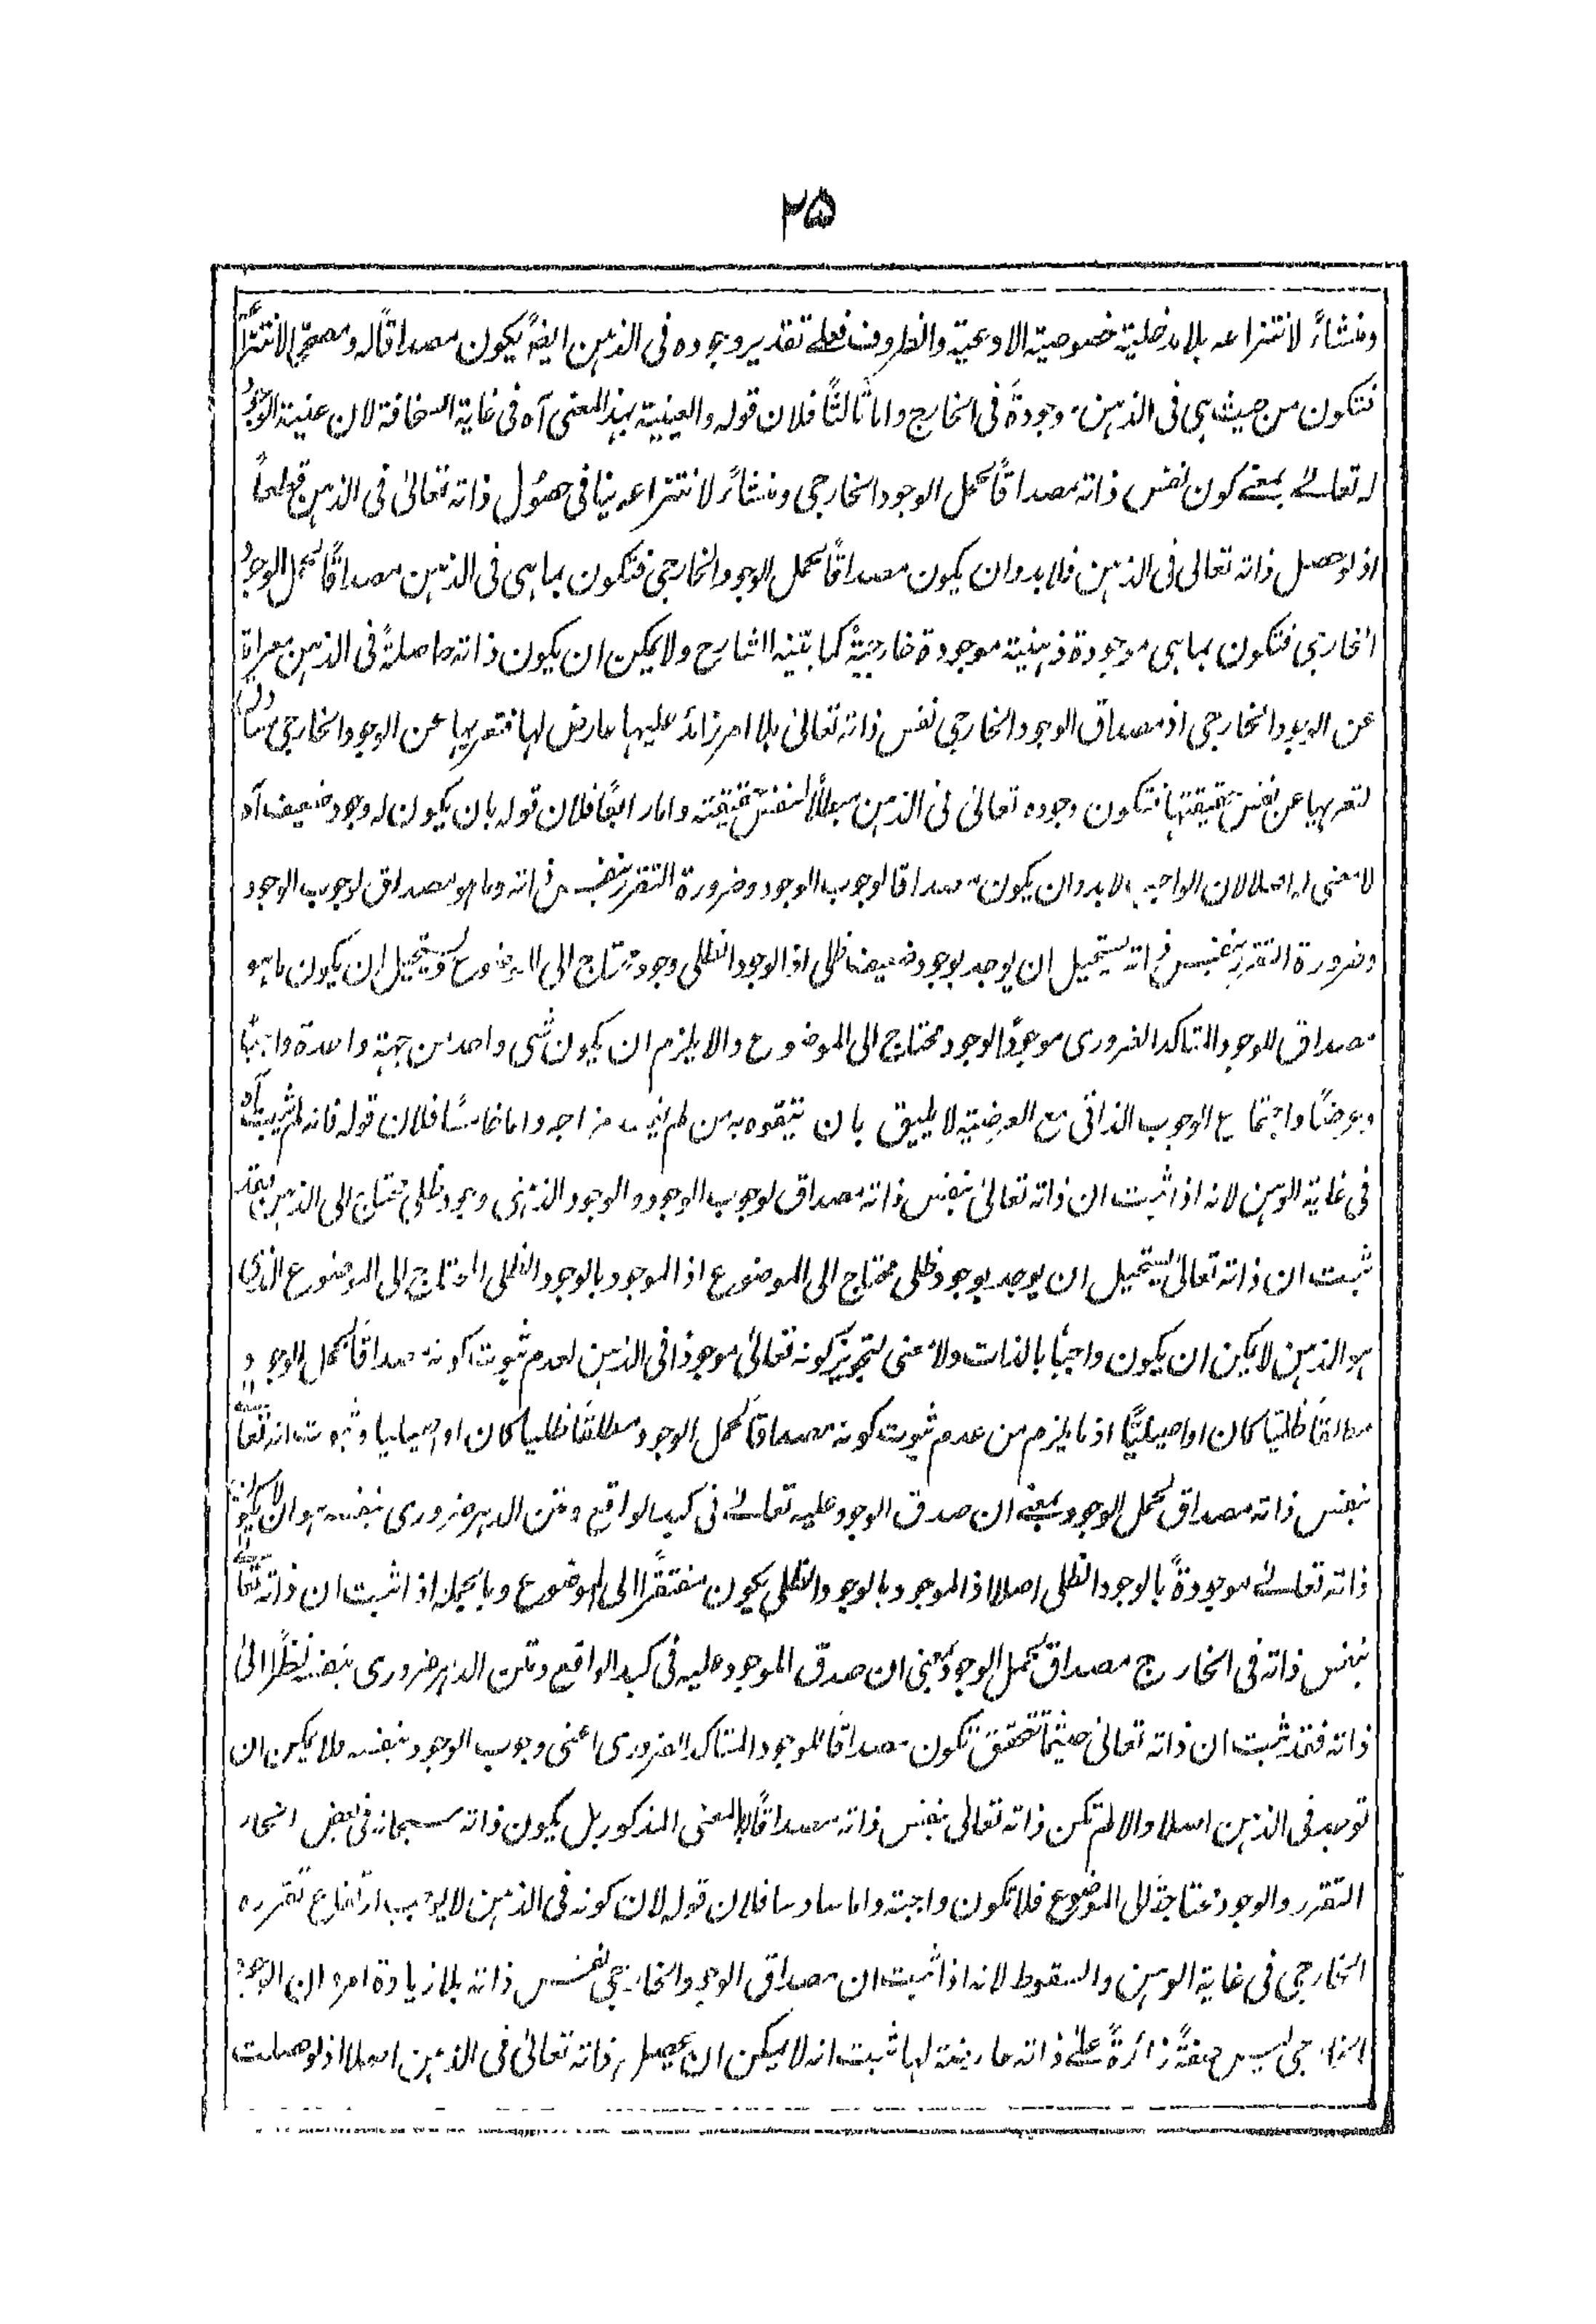 ٢٥
ومنشاءً لانتزاعه بلا مدخلية خصوصية الاوعية والظروف فعلى تقدير وجوده فى الذهن ايضًا يكون مصداقًا له ومصححًا لانتزاعه
فتكون من حيث هى فى الذهن موجودةً فى الخارج واما ثالثًا فلان قوله والعينية بهذا المعنى آه فى غاية السخافة لان عينية الوجود
له تعالى بمعنى كون نفس ذاته مصداقًا لحمل الوجود الخارجى ومنشاءً لانتزاعه ينافى حصول ذاته تعالى فى الذهن قطعاً
اذ لو حصل ذاته تعالى فى الذهن فلا بد وان يكون مصداقًا لحمل الوجود الخارجى فتكون بما هى فى الذهن مصداقًا لحمل الوجود
الخارجى فتكون بما هى موجودة ذهنية موجودة خارجيةً كما بينه الشارح ولا يمكن ان يكون ذاته حاصلةً فى الذهن معراة
عن الوجود الخارجى اذ مصداق الوجود الخارجى نفس ذاته تعالى بلا امر زائد عليها عارض لها فتعريها عن الوجود الخارجى مساوق
لتعريها عن نفس حقيقتها فتكون وجوده تعالى فى الذهن مبطلاً لنفس حقيقته واما رابعًا فلان قوله بان يكون له وجود ضعيف آه
لا معنى له اصلا لان الواجب لا بد وان يكون مصداقا لوجوب الوجود وضرورة التقرر بنفس ذاته وما هو مصداق لوجوب الوجود
وضرورة التقرر بنفس ذاته يستحيل ان يوجد بوجود ضعيف ظلى اذ الوجود الظلى وجود محتاج الى الموضوع ويستحيل ان يكون ما هو
مصداق للوجود المتاكد الضرورى موجودًا لوجود محتاج الى الموضوع والا يلزم ان يكون شى واحد من جهة واحدة واجبًا
وعرضًا واجتماع الوجوب الذاتى مع العرضية لا يليق بان يتفوه به من لم يفسد مزاجه واما خامسًا فلان قوله فانه لم يثبت آه
فى غاية الوهن لانه اذا ثبت ان ذاته تعالى بنفس ذاته مصداق لوجوب الوجود والوجود الذهنى وجود ظلى محتاج الى الذهن فقد
ثبت ان ذاته تعالى يستحيل ان يوجد بوجود ظلى محتاج الى الموضوع اذ الموجود بالوجود الظلى المحتاج الى الموضوع الذى
هو الذهن لا يمكن ان يكون واجبًا بالذات ولا معنى لتجويز كونه تعالى موجودًا فى الذهن لعدم ثبوت كونه مصداقًا لحمل الوجود
مطلقًا ظليًا كان او اصيليًّا اذ ما يلزم من عدم ثبوت كونه مصداقًا لحمل الوجود مطلقًا ظليا كان او اصيليا وثبوت انه تعالى
بنفس ذاته مصداق لحمل الوجود بمعنى ان صدق الوجود عليه تعالى فى كبد الواقع ومتن الدهر ضرورى بنفسه هو ان لا يكون
ذاته تعالى موجودةً بالوجود الظلى اصلا اذ الموجود بالوجود الظلى يكون مفتقرًا الى الموضوع وبالجملة اذا ثبت ان ذاته تعالى
بنفس ذاته فى الخارج مصداق لحمل الوجود بمعنى ان صدق الموجود عليه فى كبد الواقع ومتن الدهر ضرورى بنفسه نظرًا الى
ذاته فقد ثبت ان ذاته تعالى حيثما تتحقق تكون مصداقًا للوجود المتاكد الضرورى اعنى وجوب الوجود بنفسه فلا يمكن ان
توجد فى الذهن اصلا والا لم تكن ذاته تعالى بنفس ذاته مصداقًا بالمعنى المذكور بل يكون ذاته سبحانه فى بعض انحاء
التقرر والوجود محتاجة الى الموضوع فلا تكون واجبة واما سادسا فلان قوله لان كونه فى الذهن لا يوجب ارتفاع تقرره
الخارجى فى غاية الوهن والسقوط لانه اذا ثبت ان مصداق الوجود الخارجى نفس ذاته بلا زيادة امر وان الوجود
الخارجى ليس صفةً زائدةً على ذاته عارضة لها ثبت انه لا يمكن ان يحصل ذاته تعالى فى الذهن اصلا اذ لو حصلت